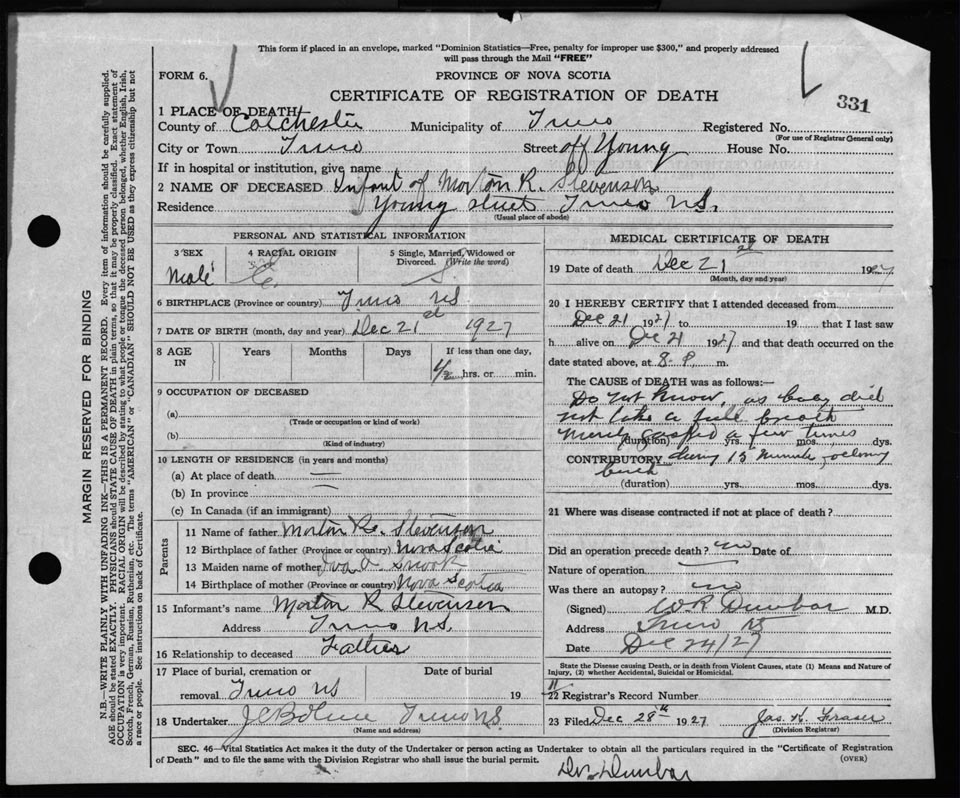 This form if placed in an envelope, marked "Dominion Statistics—Free, penalty for improper use $300," and properly addressed
will pass through the Mail "FREE"
FORM 6.
PROVINCE OF NOVA SCOTIA
CERTIFICATE OF REGISTRATION OF DEATH
331
1 PLACE OF DEATH
County of Colchester Municipality of Truro Registered No.
(For use of Registrar General only)
City or Town Truro Street off Young House No.
If in hospital or institution, give name
2 NAME OF DECEASED Infant of Morton R. Stevenson
Residence Young street Truro NS.
(Usual place of abode)
PERSONAL AND STATISTICAL INFORMATION
3 SEX Male
4 RACIAL ORIGIN
5 Single, Married, Widowed or Divorced. (Write the word) S
6 BIRTHPLACE (Province or country) Truro NS
7 DATE OF BIRTH (month, day and year) Dec 21st 1927
8 AGE IN Years Months Days If less than one day, 1/2 hrs. or min.
9 OCCUPATION OF DECEASED
(a)
(Trade or occupation or kind of work)
(b)
(Kind of industry)
10 LENGTH OF RESIDENCE (in years and months)
(a) At place of death
(b) In province
(c) In Canada (if an immigrant)
Parents
11 Name of father Morton R. Stevenson
12 Birthplace of father (Province or country) Nova Scotia
13 Maiden name of mother Snook
14 Birthplace of mother (Province or country) Nova Scotia
15 Informant's name Morton R Stevenson
Address Truro NS.
16 Relationship to deceased Father
17 Place of burial, cremation or removal Truro NS
Date of burial 19
18 Undertaker Truro NS
(Name and address)
MEDICAL CERTIFICATE OF DEATH
19 Date of death Dec 21st 1927
(Month, day and year)
20 I HEREBY CERTIFY that I attended deceased from
Dec 21 1927 to 19 that I last saw
h alive on Dec 21 1927 and that death occurred on the
date stated above, at 8- P. m.
The CAUSE of DEATH was as follows:—
Do not know, as baby did
not take a full breath
merely gasped a few times
(duration) yrs. mos. dys.
CONTRIBUTORY during 15 minutes following
birth
(duration) yrs. mos. dys.
21 Where was disease contracted if not at place of death?
Did an operation precede death? no Date of
Nature of operation
Was there an autopsy? no
(Signed) W.R. Dunbar M.D.
Address Truro NS
Date Dec 24/27
State the Disease causing Death, or in death from Violent Causes, state (1) Means and Nature of
Injury, (2) whether Accidental, Suicidal or Homicidal.
22 Registrar's Record Number
23 Filed Dec 28th 1927 Jas. H. Fraser
(Division Registrar)
SEC. 46—Vital Statistics Act makes it the duty of the Undertaker or person acting as Undertaker to obtain all the particulars required in the "Certificate of Registration
of Death" and to file the same with the Division Registrar who shall issue the burial permit.
(OVER)
Dr Dunbar
MARGIN RESERVED FOR BINDING
N.B.—WRITE PLAINLY WITH UNFADING INK—THIS IS A PERMANENT RECORD. Every item of information should be carefully supplied.
AGE should be stated EXACTLY. PHYSICIANS should STATE CAUSE OF DEATH in plain terms, so that it may be properly classified. Exact statement of
OCCUPATION is very important. RACIAL ORIGIN will be described by stating to what people or tongue the deceased person belonged, whether English, Irish,
Scotch, French, German, Russian, Ruthenian, etc. The terms "AMERICAN" or "CANADIAN" SHOULD NOT BE USED as they express citizenship but not
a race or people. See instructions on back of Certificate.